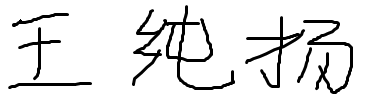 王纯扬